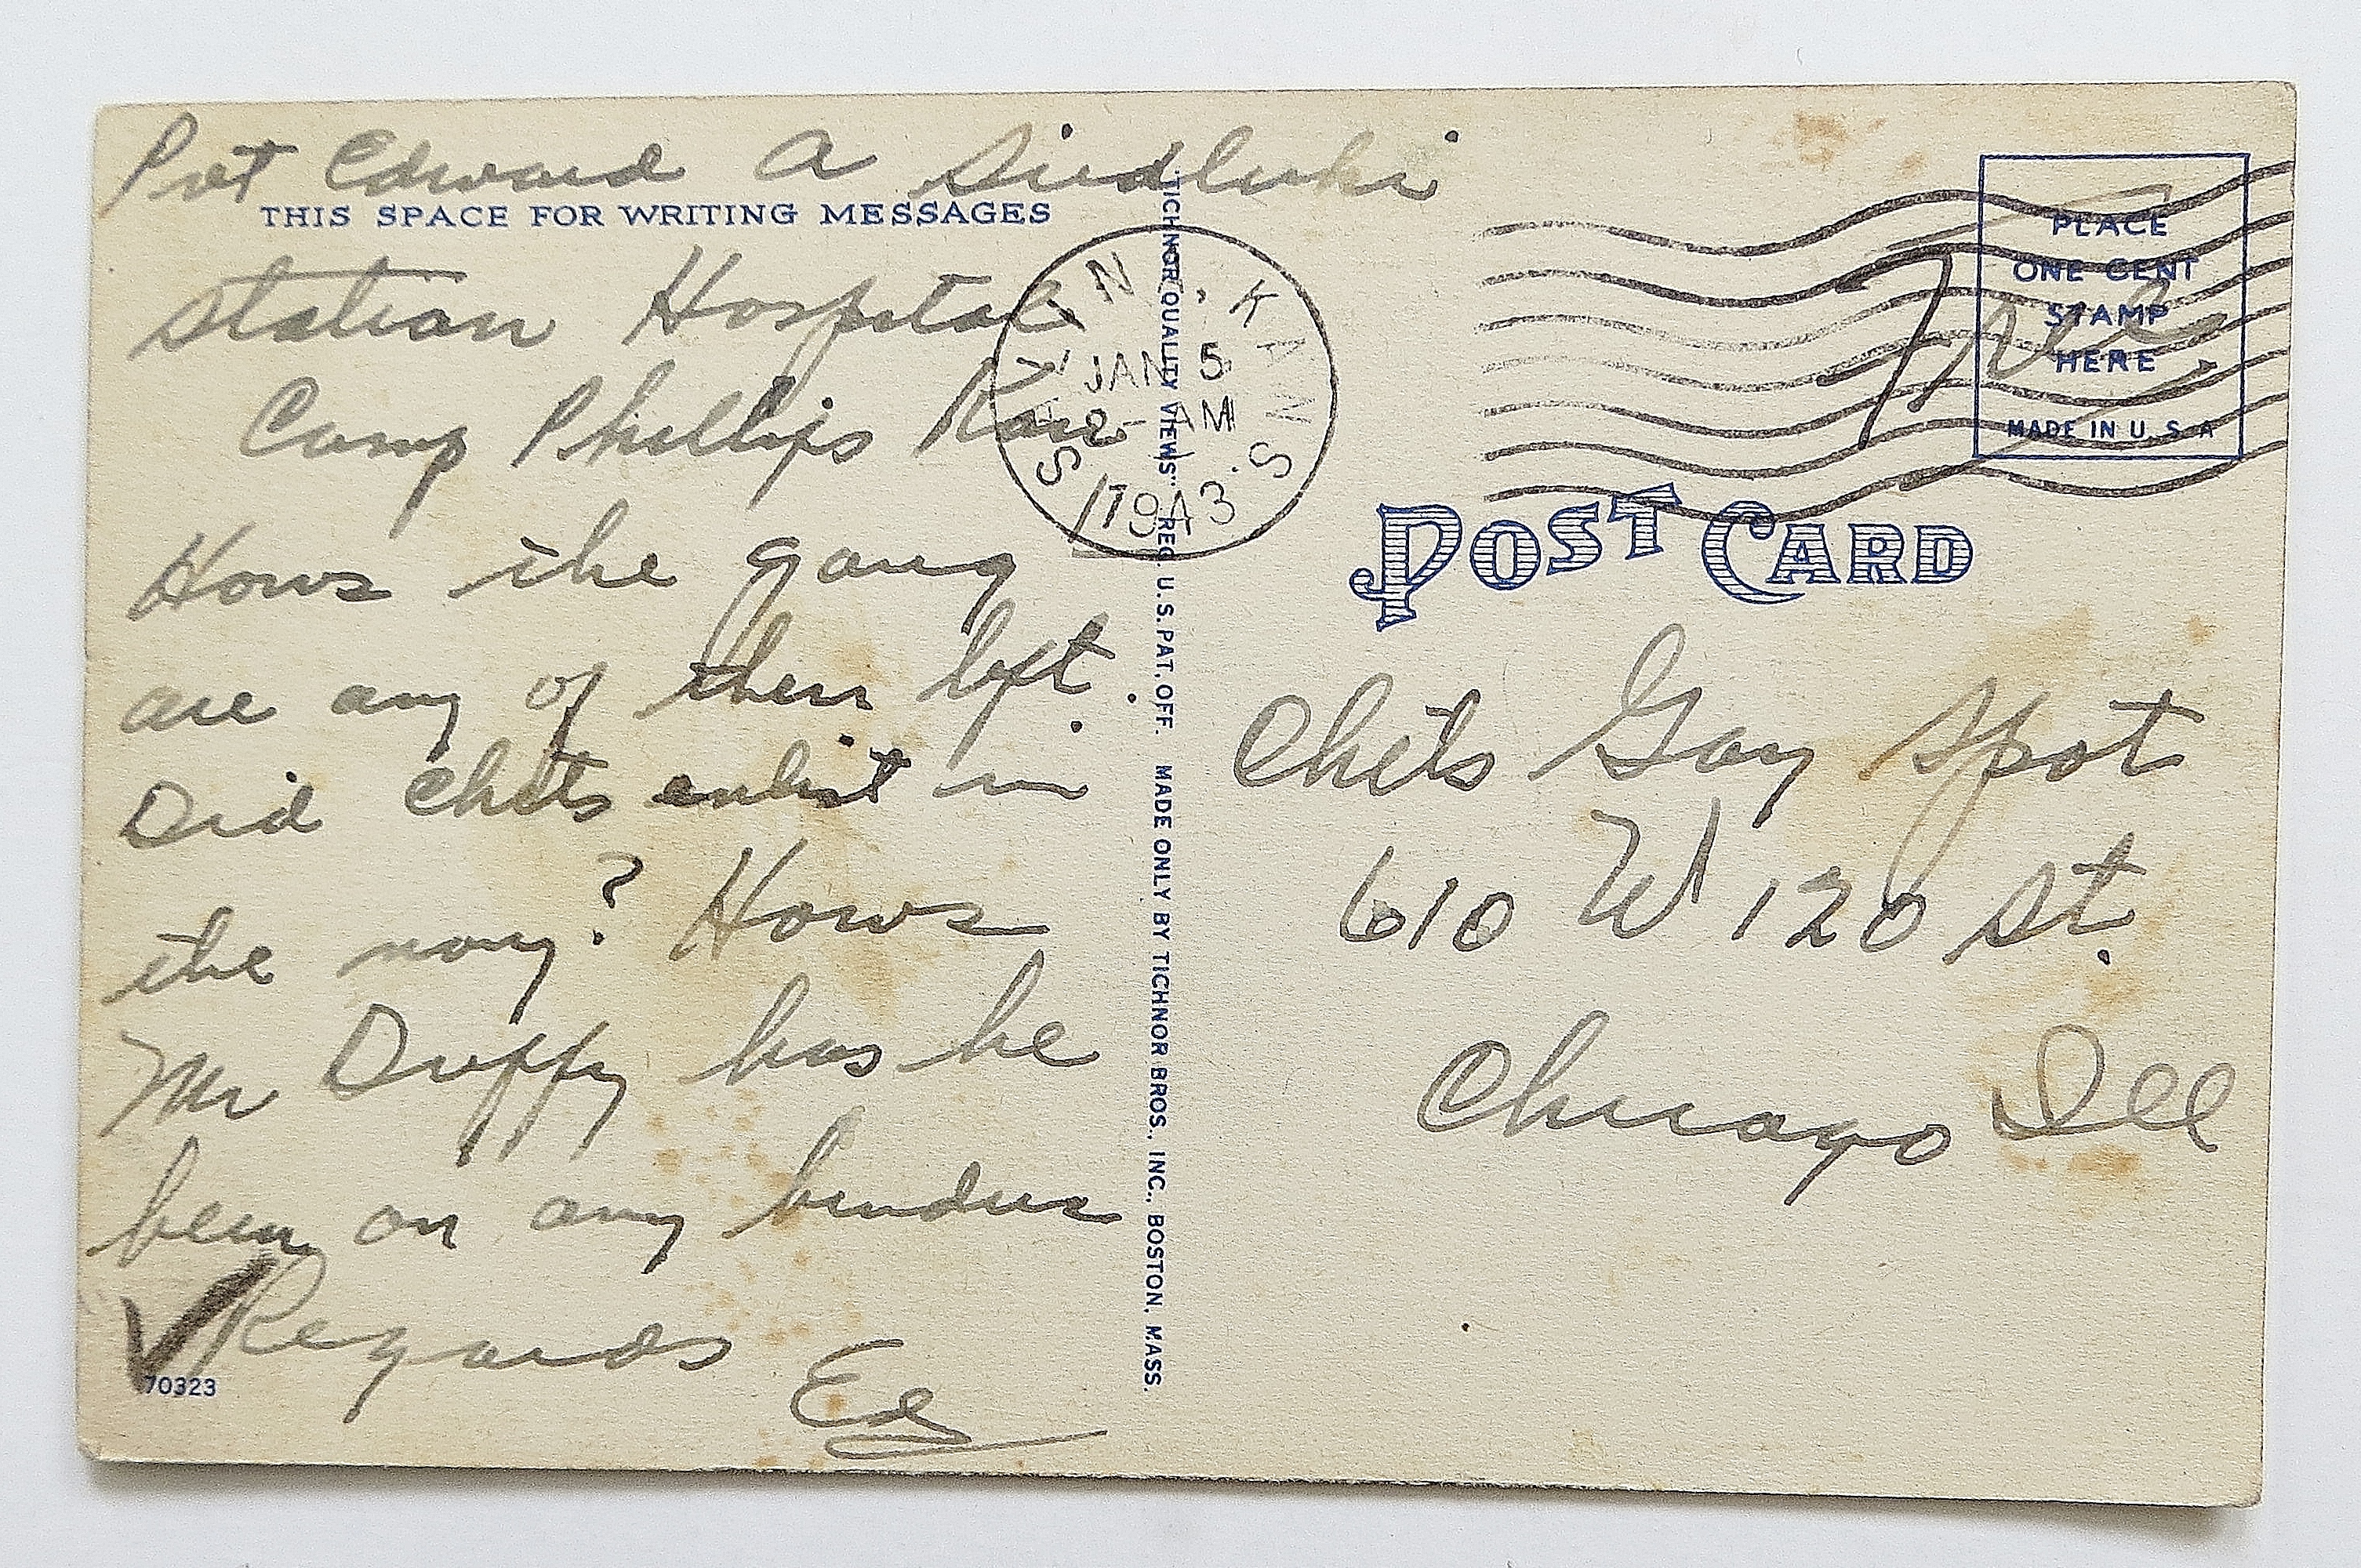 Pvt Edward A
THIS SPACE FOR WRITING MESSAGES
Station Hospital
Camp Phillips Kans
Hows the gang
are any of them left.
Did Chets enlist in
the navy? Hows
Mr Duffy has he
been on any
Regards
Ed
70323
"TICHNOR QUALITY VIEWS" REG. U.S. PAT. OFF. MADE ONLY BY TICHNOR BROS., INC., BOSTON, MASS.
KANS.
JAN 5
2-AM
1943
Free
PLACE
ONE CENT
STAMP
HERE
MADE IN U.S.A
POST CARD
Chets Gay Spot
610 W 120 St.
Chicago Ill